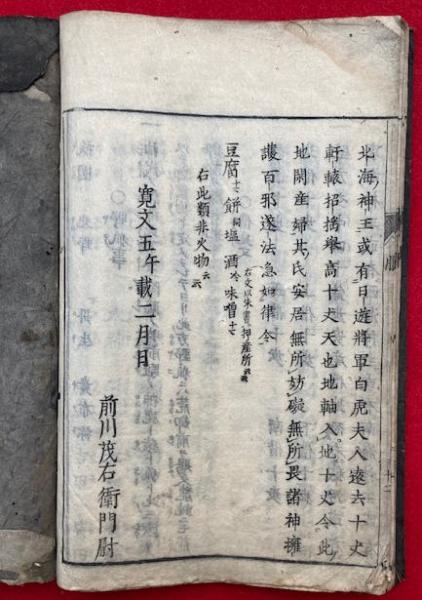 北海神王或有日遊將軍白虎夫人遠六十丈
軒轅招搖舉高十丈天也地軸入地十丈令此
地開産婦其氏安居無所妨礙無所畏諸神擁
護百邪遂法急如律令
右文以朱書押産所
豆腐 餅同塩 酒冷味噌
右此類非火物云云
寛文五午載二月日
前川茂右衛門尉